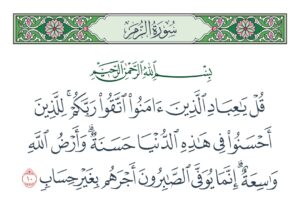 سُورَةُ الزُّمَرِ
بِسْمِ اللَّهِ الرَّحْمَٰنِ الرَّحِيمِ
قُلْ يَٰعِبَادِ ٱلَّذِينَ ءَامَنُواْ ٱتَّقُواْ رَبَّكُمْۚ لِلَّذِينَ
أَحْسَنُواْ فِي هَٰذِهِ ٱلدُّنْيَا حَسَنَةٞۗ وَأَرْضُ ٱللَّهِ
وَٰسِعَةٌۗ إِنَّمَا يُوَفَّى ٱلصَّٰبِرُونَ أَجْرَهُم بِغَيْرِ حِسَابٖ ١٠